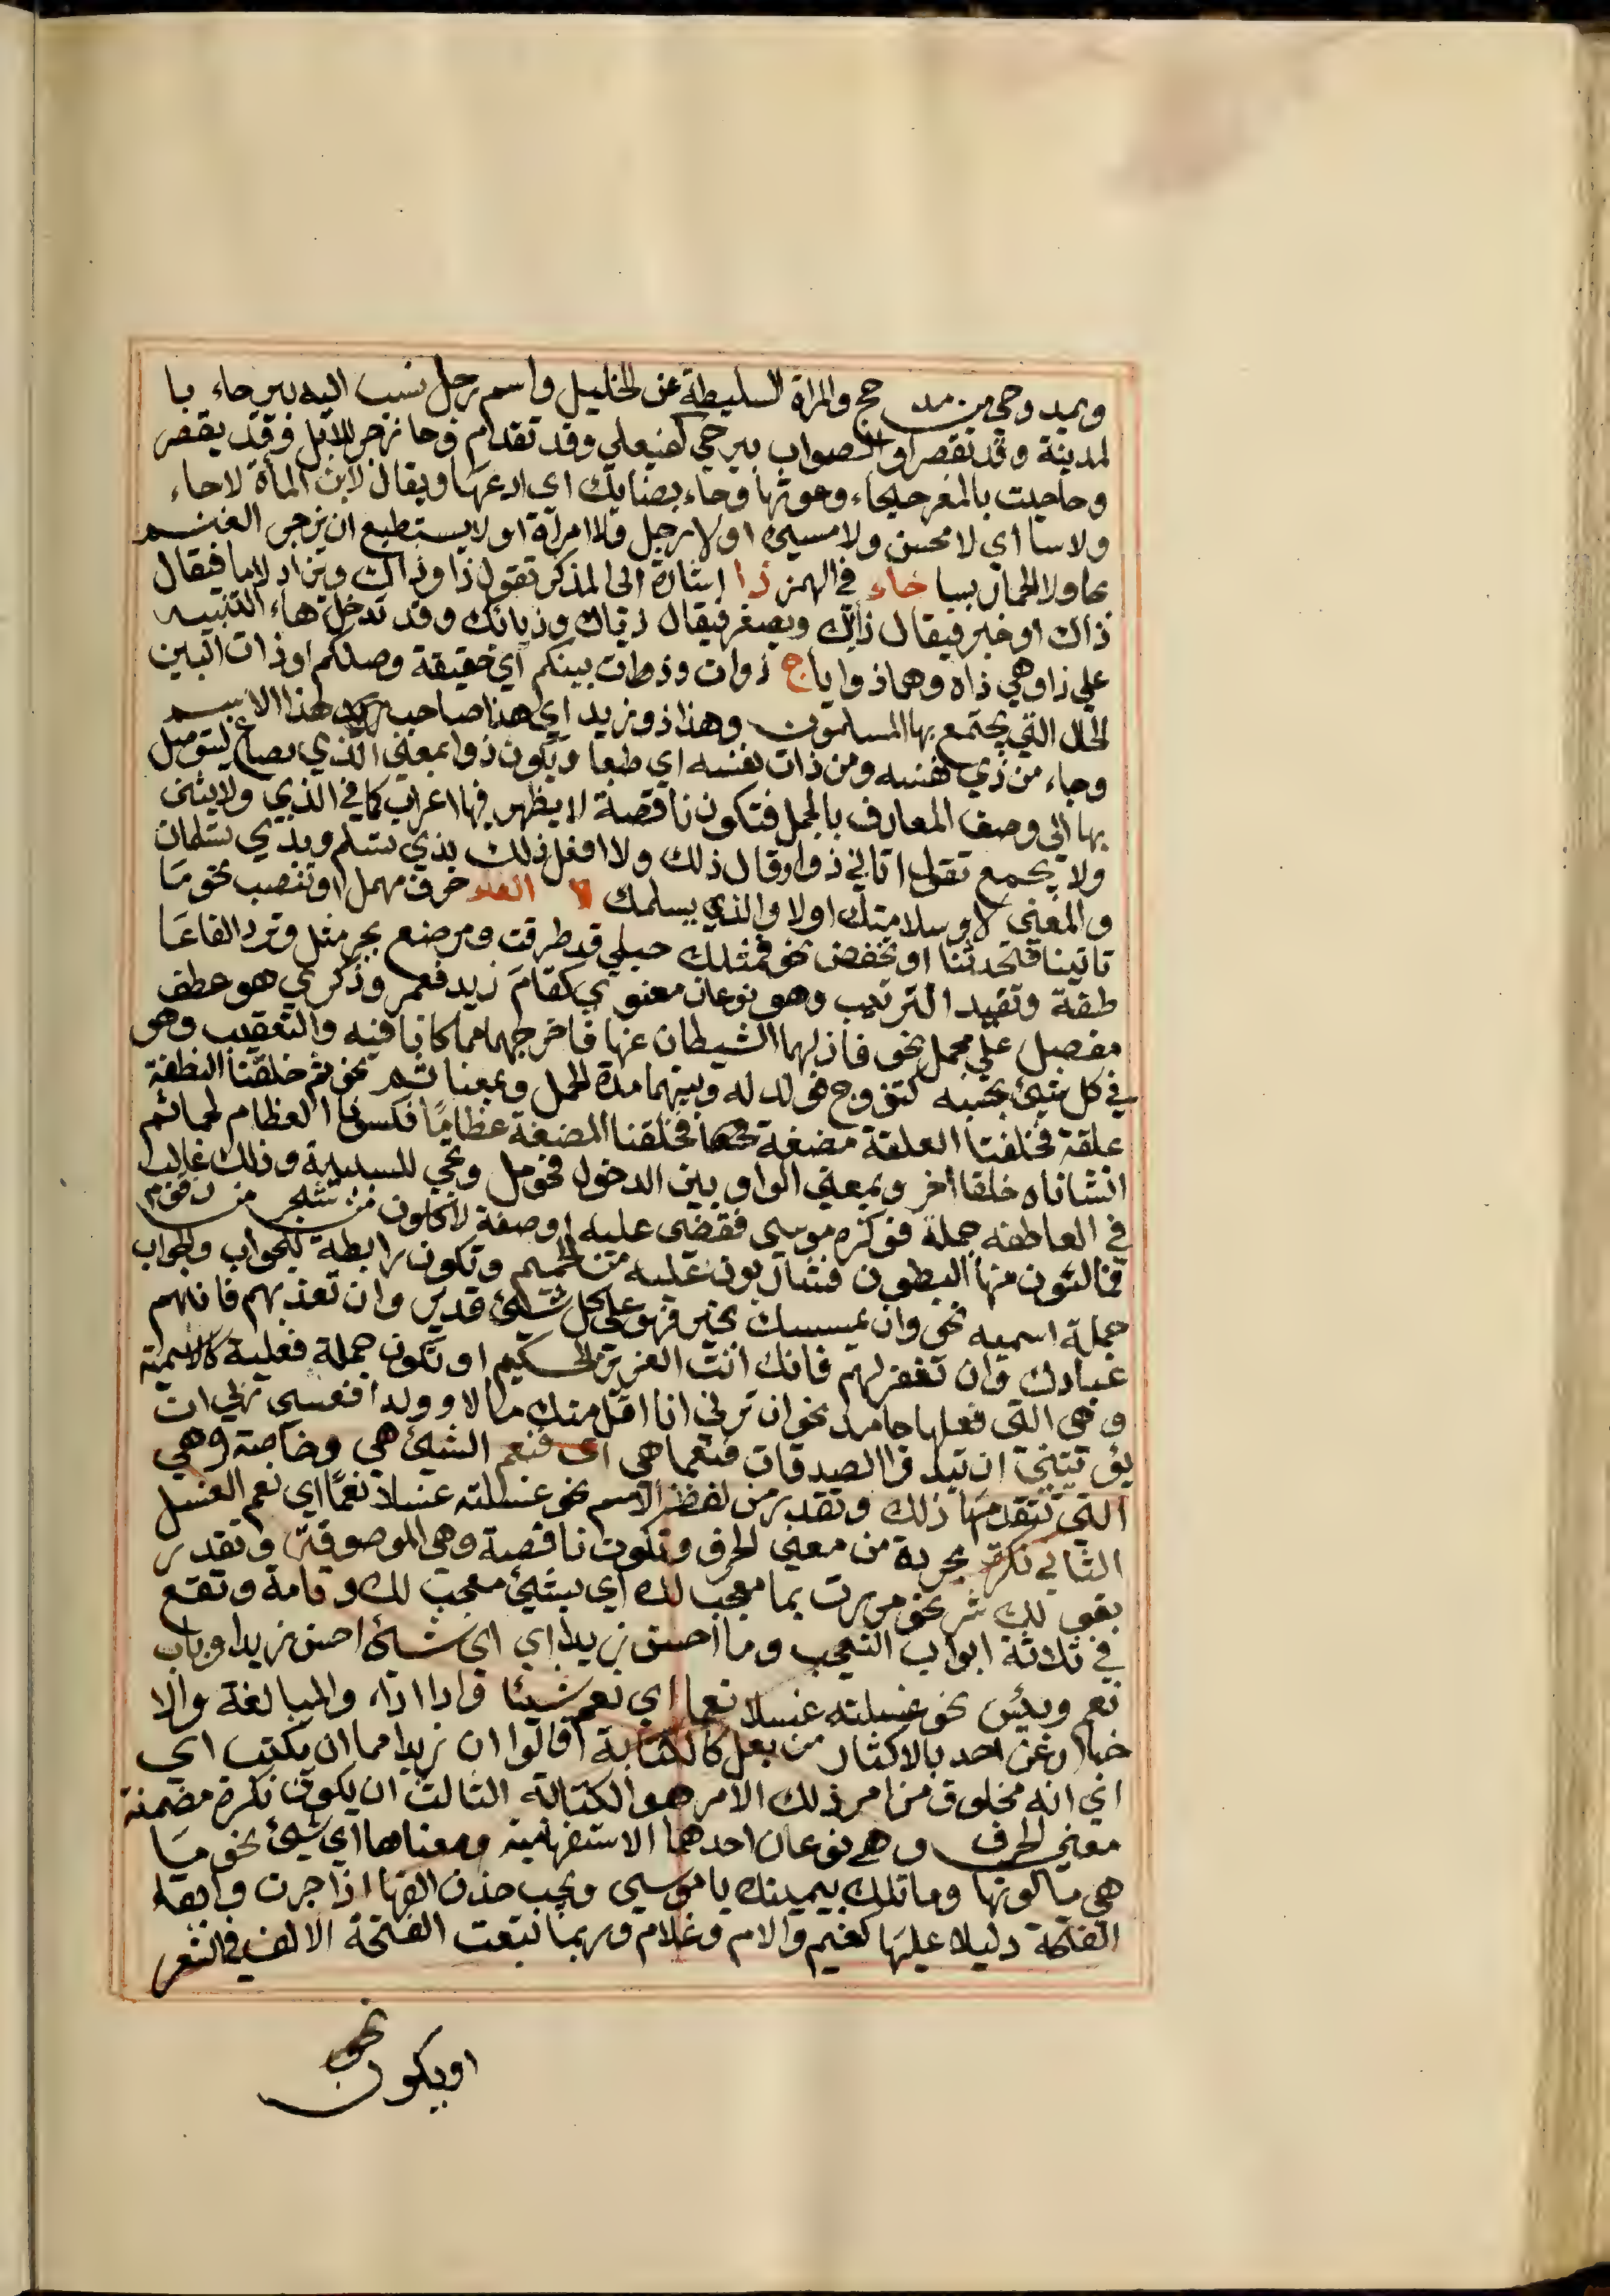 ويمد وحي من مد حج والمراة السليطة عن الخليل واسم رجل نسب اليه بيرحاء با
لمدينة وقد تقصر او الصواب بيرحي كفيعلي وقد تقدم وحا زجر للابل وقد يقصر
وحاحيت بالمعز حيحاء وحاء بضانك اي ادعها ويقال لابن المأة لاحاء
ولاسا اي لا محسن ولا مسيء او لا رجل ولا امرأة او لا يستطيع ان يزجر الغنم
بحا ولا الحمار بسا خاء في الهمز ذا اشارة الى المذكر تقول ذا وذاك ويزاد لاما فيقال
ذاك او خبر فيقال ذاك ويصغر فيقال ذياك وذيانك وقد تدخل هاء التنبيه
علي ذا وهي ذاه وهما ذوا ياج ذوات وذوات بينكم اي حقيقة وصلكم او ذات البين
الحال التي يجتمع بها المسلمون وهذا ذو زيد اي هذا صاحب هذا الاسم
وجاء من ذي نفسه ومن ذات نفسه اي طبعا ويكون ذوا بمعني الذي يصاغ ليتوصل
بها الي وصف المعارف بالجمل فتكون ناقصة لا يظهر فيها اعراب كما في الذي ولا يثني
ولا يجمع تقول اتاني ذوا وقال ذلك ولا افعل ذلك بذي تسلم وبذي تسلمان
والمعني لا وسلامتك او لا والذي يسلمك لا الفاء حرف مهمل او تنصب نحو ما
تاتينا فتحدثنا او تخفض نحو فمثلك حبلي قد طرقت ومرضع بجر مثل وترد الفا عا
طفة وتفيد الترتيب وهو نوعان معنوي كقام زيد فعمر وذكري هو عطف
مفصل علي مجمل نحو فازلهما الشيطان عنها فاخرجهما مما كانا فيه والتعقيب وهو
في كل شيئ بحسبه كتزوج فولد له وبينهما مدة الحمل وبمعنا ثم نحو ثم خلقنا النطفة
علقة فخلقنا العلقة مضغة فخلقنا المضغة عظامًا فكسونا العظام لحما ثم
انشاناه خلقا اخر وبمعني الواو بين الدخول فحومل وتجي للسببية وذلك غالب
في العاطفه جملة فوكزه موسي فقضي عليه او صفة لاكلون من شجر من زقوم
فمالئون منها البطون فشاربون عليه من الحميم وتكون رابطة للجواب والجواب
جملة اسميه نحو وان يمسسك بخير فهو علي كل شيئ قدير وان تعذبهم فانهم
عبادك وان تغفر لهم فانك انت العزيز الحكيم او تكون جملة فعلية كالاسمية
وهي التي فعلها جامد نحو ان ترني انا اقل منك مالا وولدا فعسي ربي ان
يؤتيني ان تبدوا الصدقات فنعما هي اي فنعم الشيئ هي وخاصة وهي
التي تتقدمها ذلك وتقدر من لفظ الاسم نحو غسلته غسلا نعمًا اي نعم الغسل
الثاني نكرة مجردة من معني الحرف وتكون ناقصة وهي الموصوفة وتقدر
بقولك شر نحو مررت بما معجب لك اي بشيئ معجب لك وتامة وتقع
في ثلاثة ابواب التعجب وما احسن زيدا اي اي شيئ احسن زيدا وباب
نعم وبئس نحو غسلته غسلا نعما اي نعم شيئا واذا اراد والمبالغة والا
خبار عن احد بالاكثار من فعل كالكتابة قالوا ان زيدا مما ان يكتب اي
اي انه مخلوق من امر ذلك الامر هو الكتابة الثالث ان يكون نكرة مضمنة
معني الحرف وهي نوعان احدهما الاستفهامية ومعناها اي شيئ نحو ما
هي ما لونها وما تلك بيمينك يا موسي ويجب حذف الفها اذا جرت وابقاء
الفتحة دليلا عليها كفيم والام وعلام وربما تبعت الفتحة الالف في الشعر
نحو
اويكون